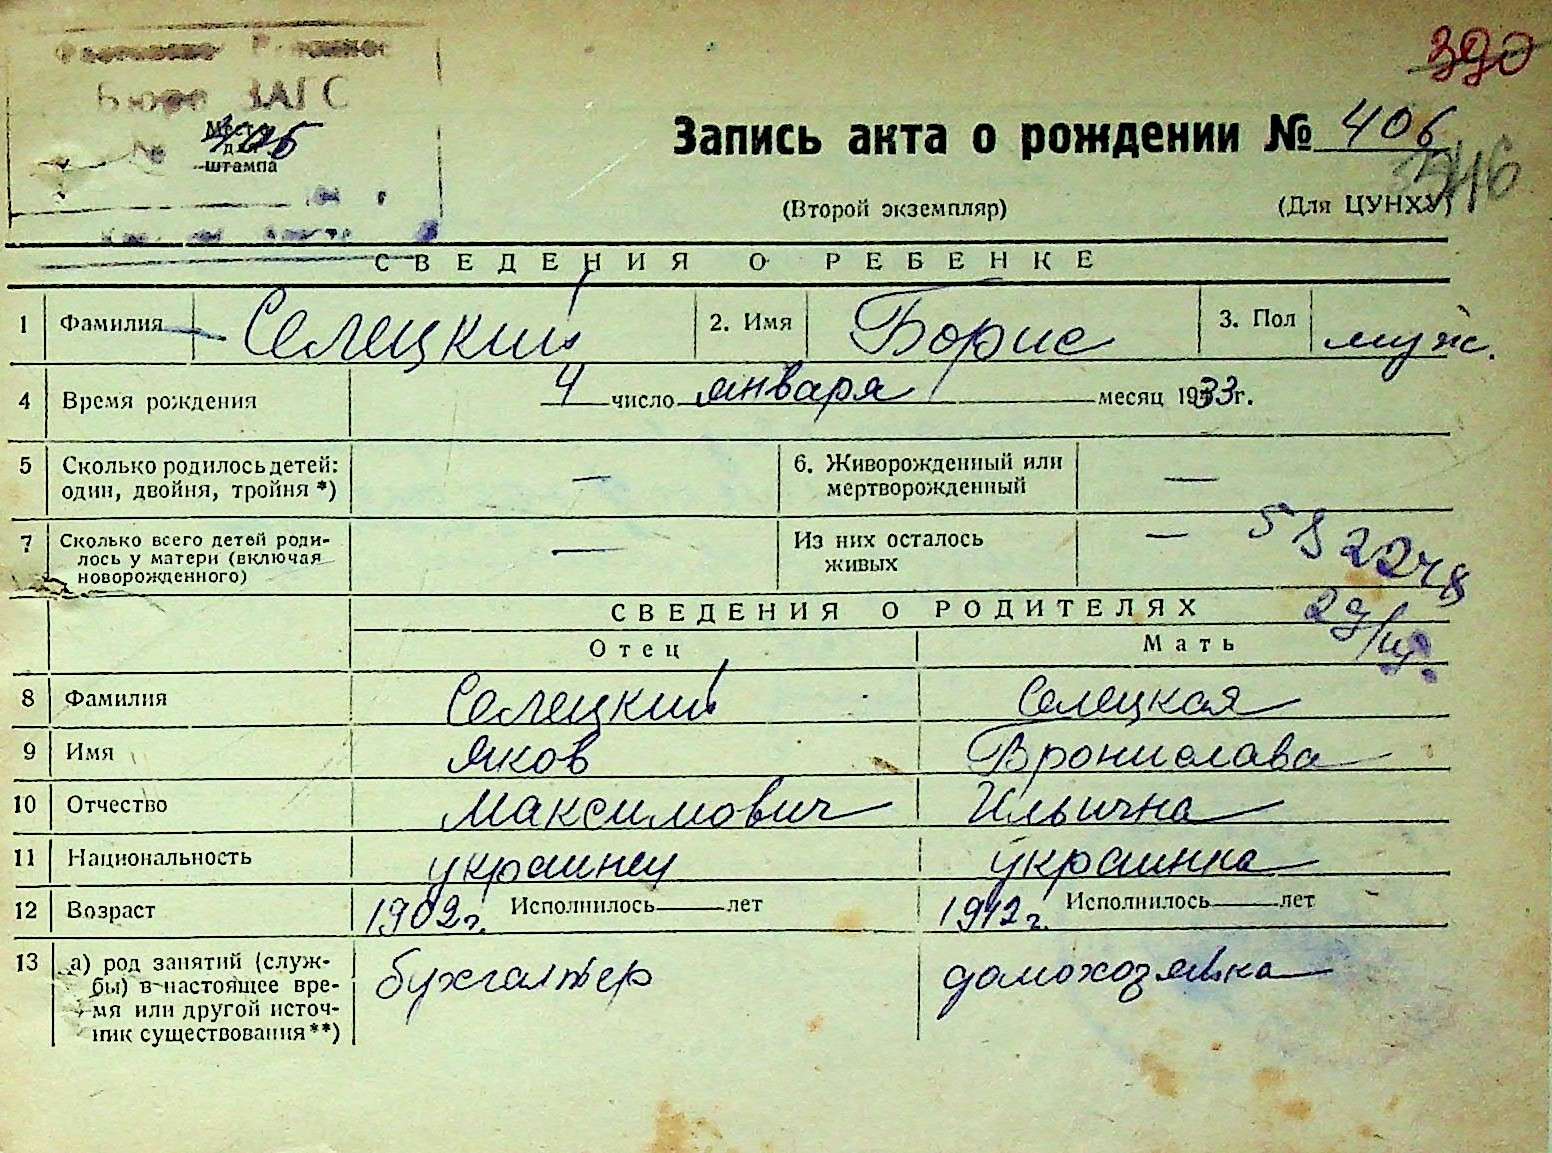 390
Бюро ЗАГС
№ 406
Место
для
штампа
Запись акта о рождении № 406
46
(Второй экземпляр) (Для ЦУНХУ)
СВЕДЕНИЯ О РЕБЕНКЕ
1 Фамилия Селецкий 2. Имя Борис 3. Пол муж.
4 Время рождения 4 число января месяц 1933г.
5 Сколько родилось детей: один, двойня, тройня *) — 6. Живорожденный или мертворожденный —
7 Сколько всего детей родилось у матери (включая новорожденного) — Из них осталось живых —
СВЕДЕНИЯ О РОДИТЕЛЯХ
Отец Мать
8 Фамилия Селецкий Селецкая
9 Имя Яков Бронислава
10 Отчество Максимович Ильична
11 Национальность украинец украинка
12 Возраст 1902г. Исполнилось — лет 1912г. Исполнилось — лет
13 а) род занятий (служ- бухгалтер домохозяйка
бы) в настоящее вре-
мя или другой источ-
ник существования **)